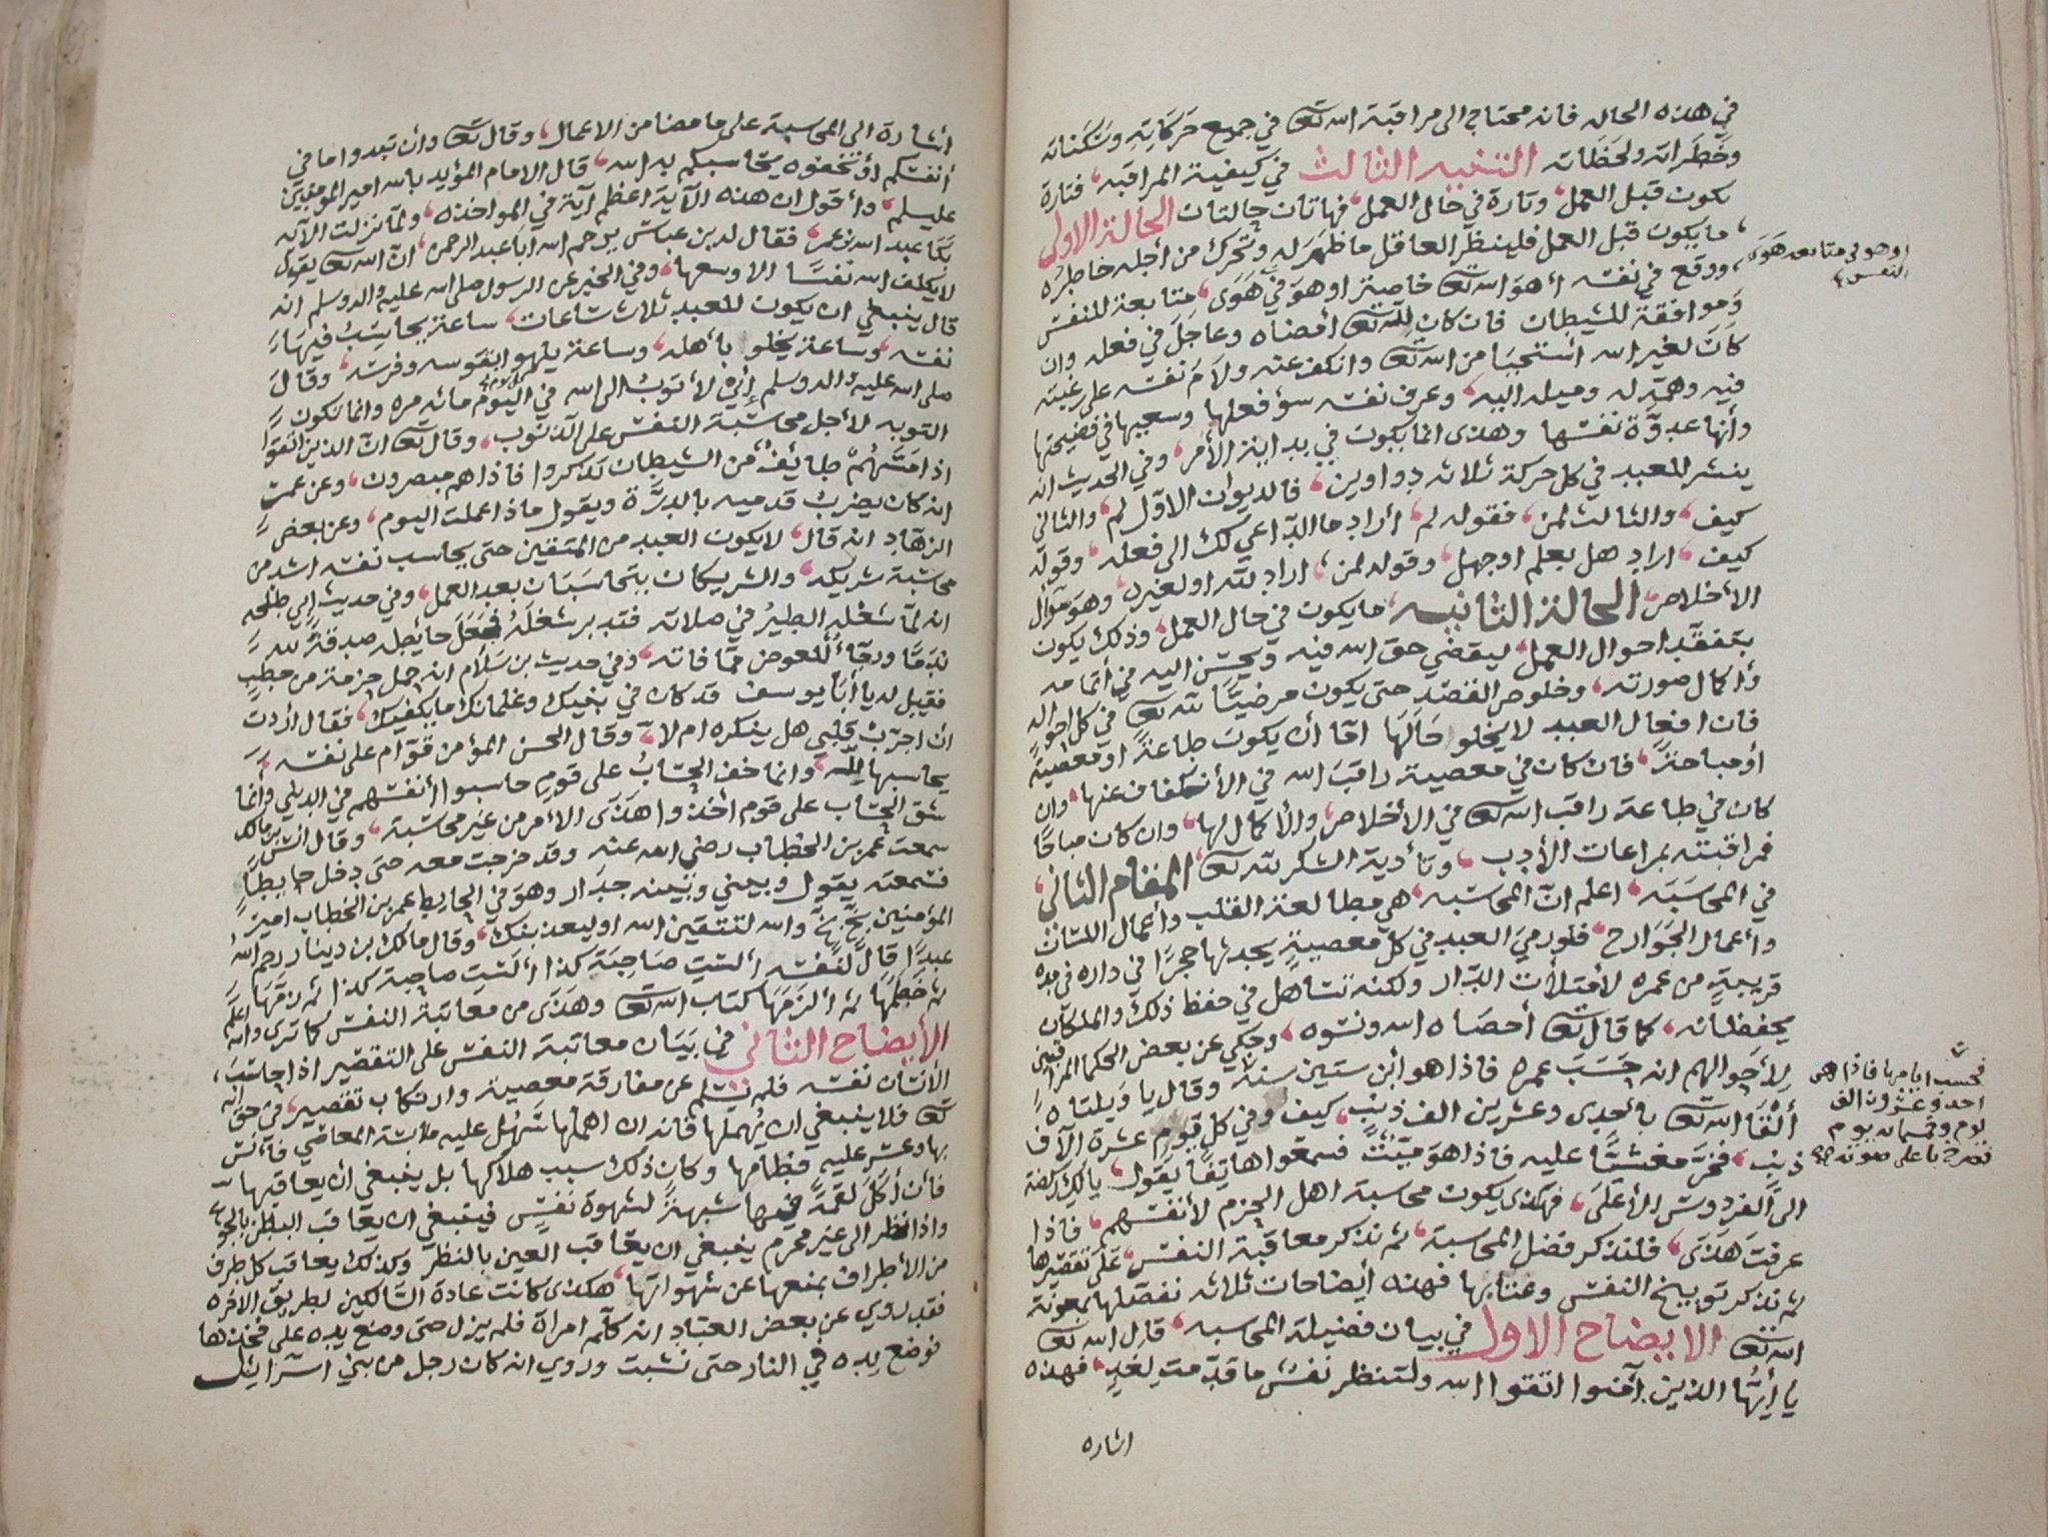 في هذه الحاله فانه محتاج الى مراقبة الله تعا في جميع حركاته وسكناته
وخطراته ولحظاته التنبيه الثالث في كيفية المراقبه فتارة
يكون قبل العمل وتارة في حال العمل فهاتان حالتان الحالة الاولى
ما يكون قبل العمل فلينظر العاقل ما ظهر له وتحرك من أجله خاطره
ووقع في نفسه أهو الله تعا خاصة او هو في هوى متابعة للنفس
وموافقة للشيطان فان كان لله تعا أمضاه وعاجل في فعله وان
كان لغير الله استحيا من الله تعا وانكف عنه ولام نفسه على رغبته
فيه وهمه له وميله اليه وعرف نفسه سؤ فعلها وسعيها في فضيحتها
وأنها عدوة نفسها وهذى انما يكون في بداية الأمر وفي الحديث انه
ينشر للعبد في كل حركة ثلاثه دواوين فالديوان الاول لم والثاني
كيف والثالث لمن فقوله لم أراد ما الداعي لك الى فعله وقوله
كيف اراد هل بعلم او جهل وقوله لمن اراد لله او لغيره وهو سؤال
الأخلاص الحالة الثانيه ما يكون في حال العمل وذلك يكون
بتفقد احوال العمل ليقضي حق الله فيه ويحسن اليه في أتمامه
وأكمال صورته وخلوص القصد حتى يكون مرضيا لله تعا في كل احواله
فان افعال العبد لا يخلو حالها اما أن يكون طاعة او معصية
أو مباحة فان كان في معصية راقب الله في الأنكفاف عنها وان
كان في طاعة راقب الله تعا في الأخلاص والأكمال لها وان كان مباحا
فمراقبته بمراعات الأدب وتأدية الشكر لله تعا المقام الثاني
في المحاسبه اعلم ان المحاسبه هي مطالعة القلب وأعمال اللسان
وأعمال الجوارح فلو رمي العبد في كل معصية يجد لها حجرا في داره في مده
قريبة من عمره لأمتلأت الدار ولكنه تساهل في حفظ ذلك والملكان
يحفظانه كما قال تعا أحصاه الله ونسوه وحكي عن بعض الحكما المراقبين
لأحوالهم انه حسب عمره فاذا هو أبن ستين سنة وقال يا ويلتاه
ألقا الله تعا بأحدى وعشرين الف ذنب كيف وفي كل يوم عشرة الآف
ذنب فخر مغشيا عليه فاذا هو ميت فسمعوا هاتفا يقول يالك ركضة
الى الفردوس الأعلى فهكذى يكون محاسبة اهل الحزم لأنفسهم فاذا
عرفت هذى فلنذكر فضل المحاسبة ثم نذكر معاقبة النفس على تقصيرها
ثم نذكر توبيخ النفس وعتابها فهذه أيضاحات ثلاثه نفصلها بمعونة
الله تعا الايضاح الاول في بيان فضيلة المحاسبه قال الله تعا
يا أيها الذين آمنوا اتقوا الله ولتنظر نفس ما قدمت لغد فهذه
اشاره
او هو في متابعه هوى
النفس
فحسب ايامها فاذا هي
احد وعشرون الف
يوم وخمسمائه يوم
فصرخ باعلى صوته
اشارة الى المحاسبة على ما مضا من الاعمال وقال تعا وان تبدوا ما في
أنفسكم أو تخفوه يحاسبكم به الله قال الامام المؤيد بالله امير المؤمنين
عليسلم وأقول ان هذه الآية اعظم آية في المواخذه ولما نزلت الآيه
بكا عبد الله بن عمر فقال له بن عباس يرحم الله ابا عبد الرحمن ان الله تعا يقول
لا يكلف الله نفسا الا وسعها وفي الخبر عن الرسول صلى الله عليه واله وسلم انه
قال ينبغي ان يكون للعبد ثلاث ساعات ساعة يحاسب فيها
نفسه وساعة يخلو بأهله وساعة يلهو بقوسه وفرسه وقال
صلى الله عليه واله وسلم إني لأتوب الى الله في اليوم مائه مره وانما تكون
التوبه لأجل محاسبة النفس على الذنوب وقال تعا ان الذين اتقوا
اذا مسهم طائف من الشيطان تذكروا فاذا هم مبصرون وعن عمر
انه كان يضرب قدميه بالدرة ويقول ماذا عملت اليوم وعن بعض
الزهاد انه قال لا يكون العبد من المتقين حتى يحاسب نفسه اشد من
محاسبة شريكه والشريكان يتحاسبان بعد العمل وفي حديث ابي طلحه
انه لما شغله الطير في صلاته فتدبر شغله فجعل حائطه صدقة لله
ندما ورجاء للعوض مما فاته وفي حديث بن سلام انه حمل حزمة من حطب
فقيل له يا أبا يوسف قد كان في بنيك وغلمانك ما يكفيك فقال أردت
ان اجرب قلبي هل ينكره ام لا وقال الحسن المؤمن قوام على نفسه
يحاسبها لله وانما خف الحساب على قوم حاسبوا أنفسهم في الدنيا وأنما
شق الحساب على قوم أخذوا هذى الأمر من غير محاسبة وقال انس بن مالك
سمعت عمر بن الخطاب رضي الله عنه وقد خرجت معه حتى دخل حايطا
فسمعته يقول وبيني وبينه جدار وهو في الحايط عمر بن الخطاب امير
المؤمنين بخ بخ والله لتتقين الله او ليعذبنك وقال مالك بن دينار رحم الله
عبدا قال لنفسه ألست صاحبة كذا ألست صاحبة كذا ثم زمها
ثم خطمها ثم ألزمها كتاب الله تعا وهذى من معاتبة النفس كما ترى والله اعلم
الأيضاح الثاني في بيان معاتبة النفس على التقصير اذا حاسب
الأنسان نفسه فلم تسلم عن مفارقة معصية وارتكاب تقصير في حق الله
تعا فلا ينبغي ان يهملها فانه ان اهملها سهل عليه ملابسة المعاصي فأنس
بها وعسر عليه فطامها وكان ذلك سبب هلاكها بل ينبغي أن يعاقبها
فأن أكل لقمة فيها شبهة لشهوة نفس فينبغي ان يعاقب البطن بالجوع
واذا نظر الى غير محرم ينبغي ان يعاقب العين بالنظر وكذلك يعاقب كل طرف
من الأطراف بمنعها عن شهواتها هكذى كانت عادة السالكين لطريق الاخره
فقد روي عن بعض العباد انه كلم امرأة فلم يزل حتى وضع يده على فخذها
فوضع يده في النار حتى نشبت وروي انه كان رجل من بني اسرائيل